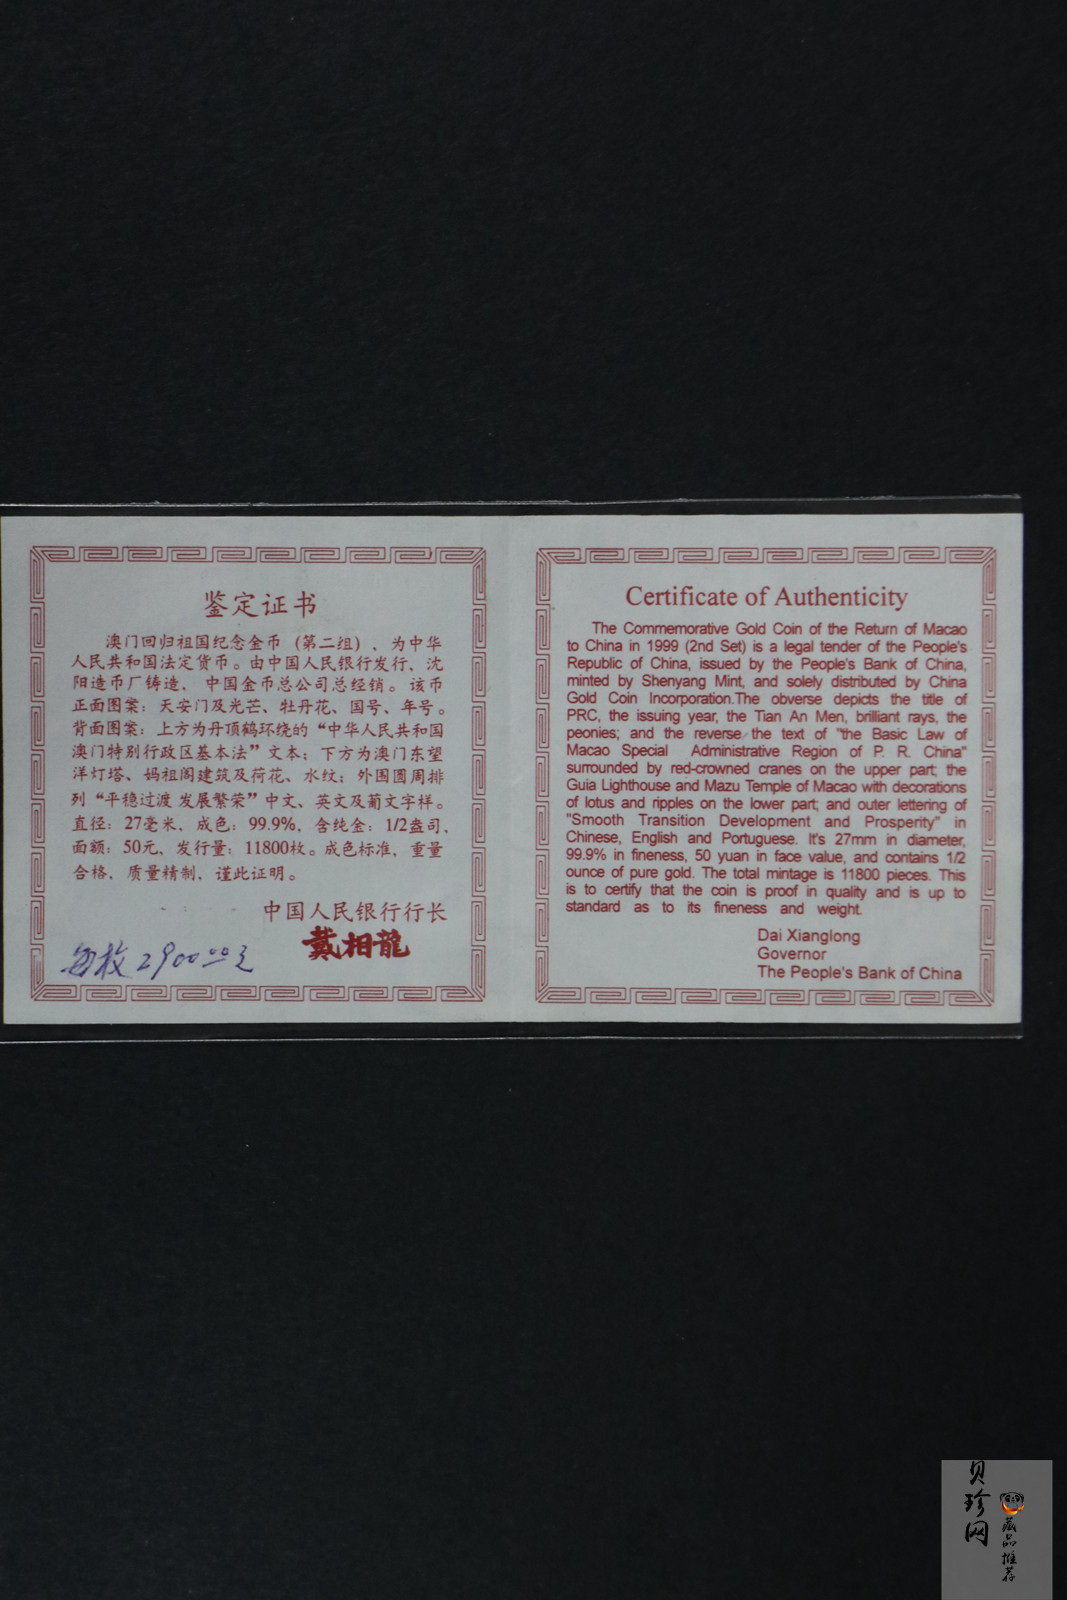 鉴定证书
澳门回归祖国纪念金币（第二组）、为中华
人民共和国法定货币。由中国人民银行发行、沈
阳造币厂铸造、中国金币总公司总经销。该币
正面图案：天安门及光芒、牡丹花、国号、年号。
背面图案：上方为丹顶鹤环绕的“中华人民共和国
澳门特别行政区基本法”文本；下方为澳门东望
洋灯塔、妈祖阁建筑及荷花、水纹；外围圆周排
列“平稳过渡 发展繁荣”中文、英文及葡文字样。
直径：27毫米、成色：99.9%，含纯金：1/2盎司、
面额：50元，发行量：11800枚。成色标准，重量
合格，质量精制，谨此证明。
中国人民银行行长
戴相龍
每枚2900.00元
Certificate of Authenticity
The Commemorative Gold Coin of the Return of Macao
to China in 1999 (2nd Set) is a legal tender of the People's
Republic of China, issued by the People's Bank of China,
minted by Shenyang Mint, and solely distributed by China
Gold Coin Incorporation.The obverse depicts the title of
PRC, the issuing year, the Tian An Men, brilliant rays, the
peonies; and the reverse the text of "the Basic Law of
Macao Special Administrative Region of P. R. China"
surrounded by red-crowned cranes on the upper part; the
Guia Lighthouse and Mazu Temple of Macao with decorations
of lotus and ripples on the lower part; and outer lettering of
"Smooth Transition Development and Prosperity" in
Chinese, English and Portuguese. It's 27mm in diameter,
99.9% in fineness, 50 yuan in face value, and contains 1/2
ounce of pure gold. The total mintage is 11800 pieces. This
is to certify that the coin is proof in quality and is up to
standard as to its fineness and weight.
Dai Xianglong
Governor
The People's Bank of China
贝珍网
藏品推荐